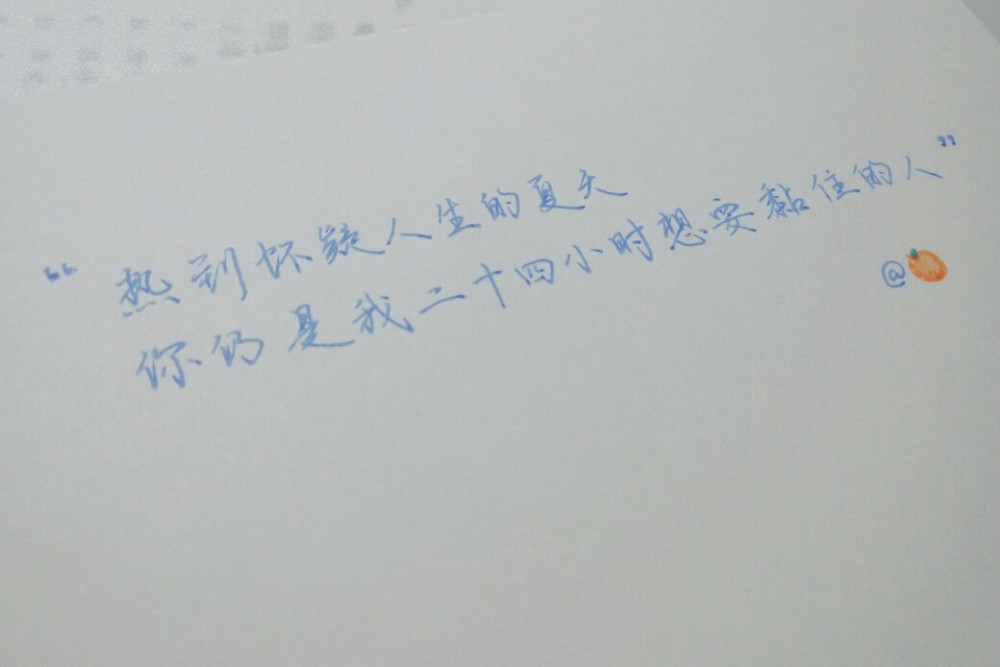 “热到怀疑人生的夏天
你仍是我二十四小时想要黏住的人”
@